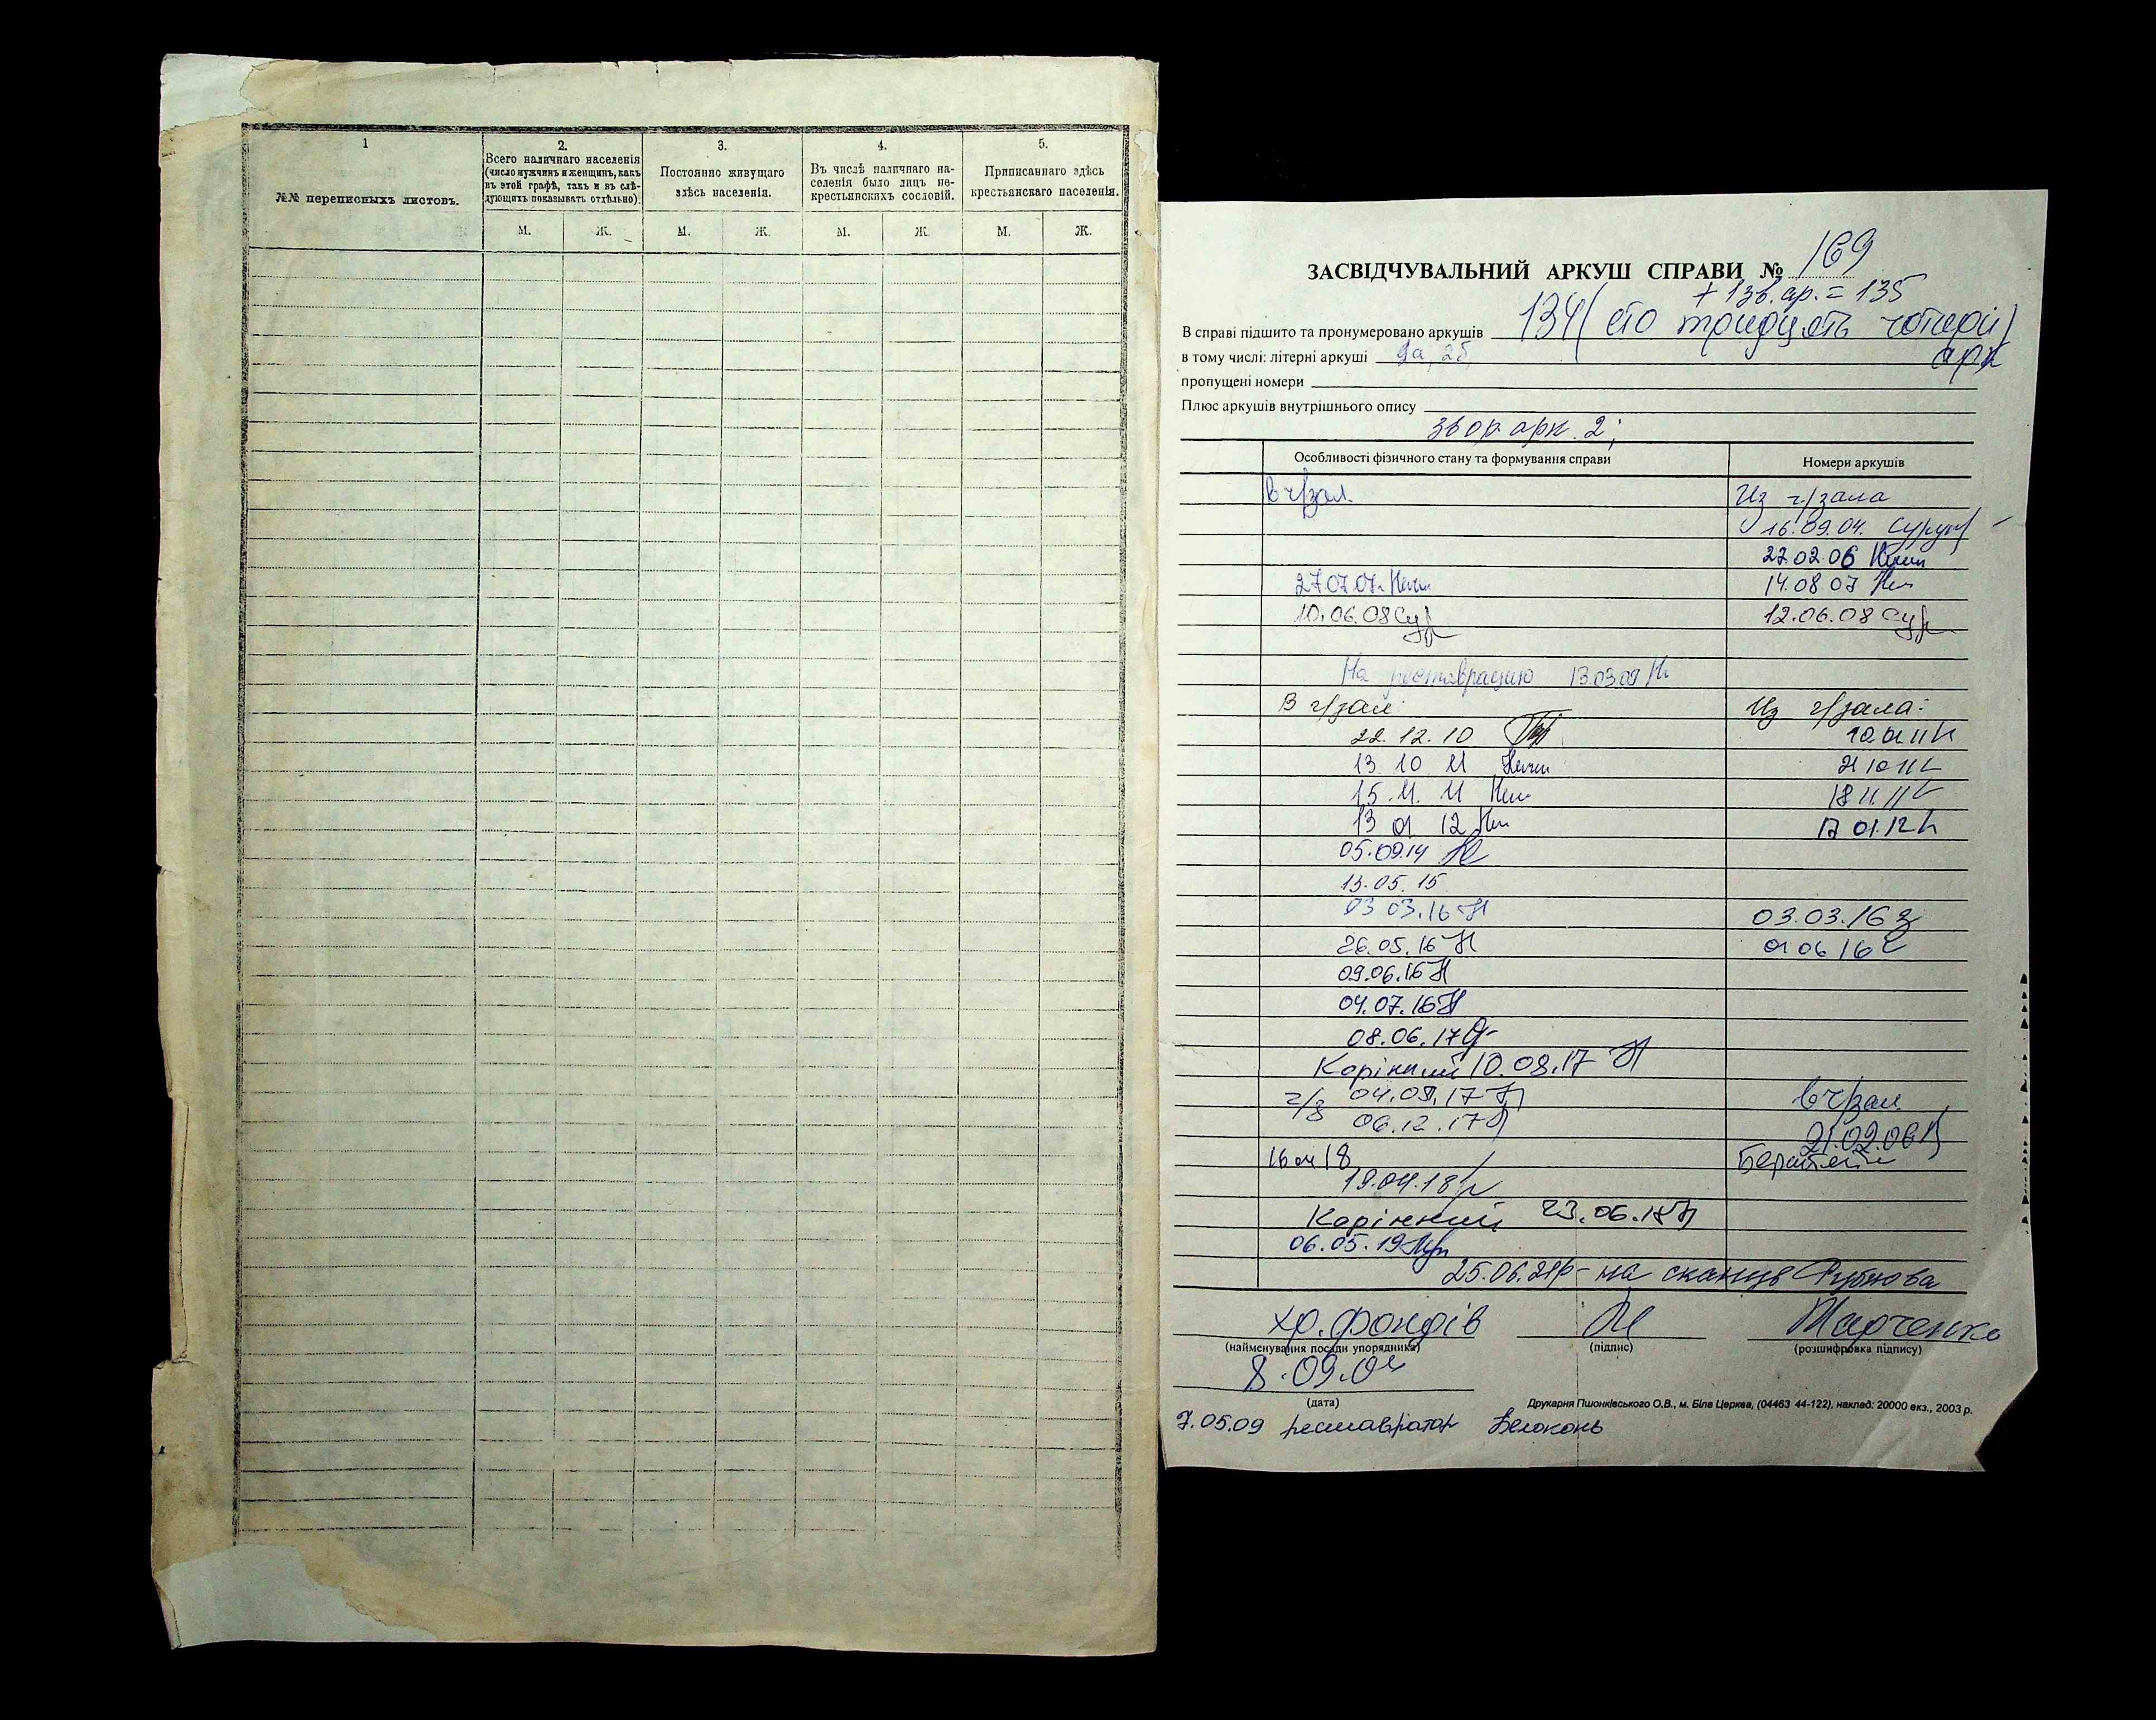 1
№№ переписныхъ листовъ.
2.
Всего наличнаго населенія
(число мужчинъ и женщинъ, какъ
въ этой графѣ, такъ и въ слѣ-
дующихъ показывать отдѣльно).
3.
Постоянно живущаго
здѣсь населенія.
4.
Въ числѣ наличнаго на-
селенія было лицъ не-
крестьянскихъ сословій.
5.
Приписаннаго здѣсь
крестьянскаго населенія.
М. Ж. М. Ж. М. Ж. М. Ж.
ЗАСВІДЧУВАЛЬНИЙ АРКУШ СПРАВИ № 169
+ 1 зв. ар. = 135
В справі підшито та пронумеровано аркушів 134 (сто тридцять чотири)
арк
в тому числі: літерні аркуші 2а, 2б
пропущені номери
Плюс аркушів внутрішнього опису
звор арк. 2;
Особливості фізичного стану та формування справи Номери аркушів
В ч/зал. Из ч/зала
16.09.04.
22.02.06
27.07.07. 14.08 07
10.06.08 Сур 12.06.08 Сур
На реставрацию 13.03 09
В ч/зал: Из ч/зала:
22.12.10
13 10 11 21 10 11
15.11.11 18 11 11
13 01 12 17 01.12
05.09.14
13.05.15
03 03.16 03.03.16
26.05.16 01 06 16
09.06.16
04.07.16
08.06.17
Корінний 10.08.17
ч/з 04.09.17 в ч/зал
06.12.17 21.02.06
16 04 18
19.04.18
Корінний 23.06.18
06.05.19
25.06.21р - на сканув
хр. фондів Марченко
(найменування посади упорядника) (підпис) (розшифровка підпису)
8.09.04
(дата)
Друкарня Пшонківського О.В., м. Біла Церква, (04463 44-122), наклад: 20000 екз., 2003 р.
7.05.09 реставратор Белоконь